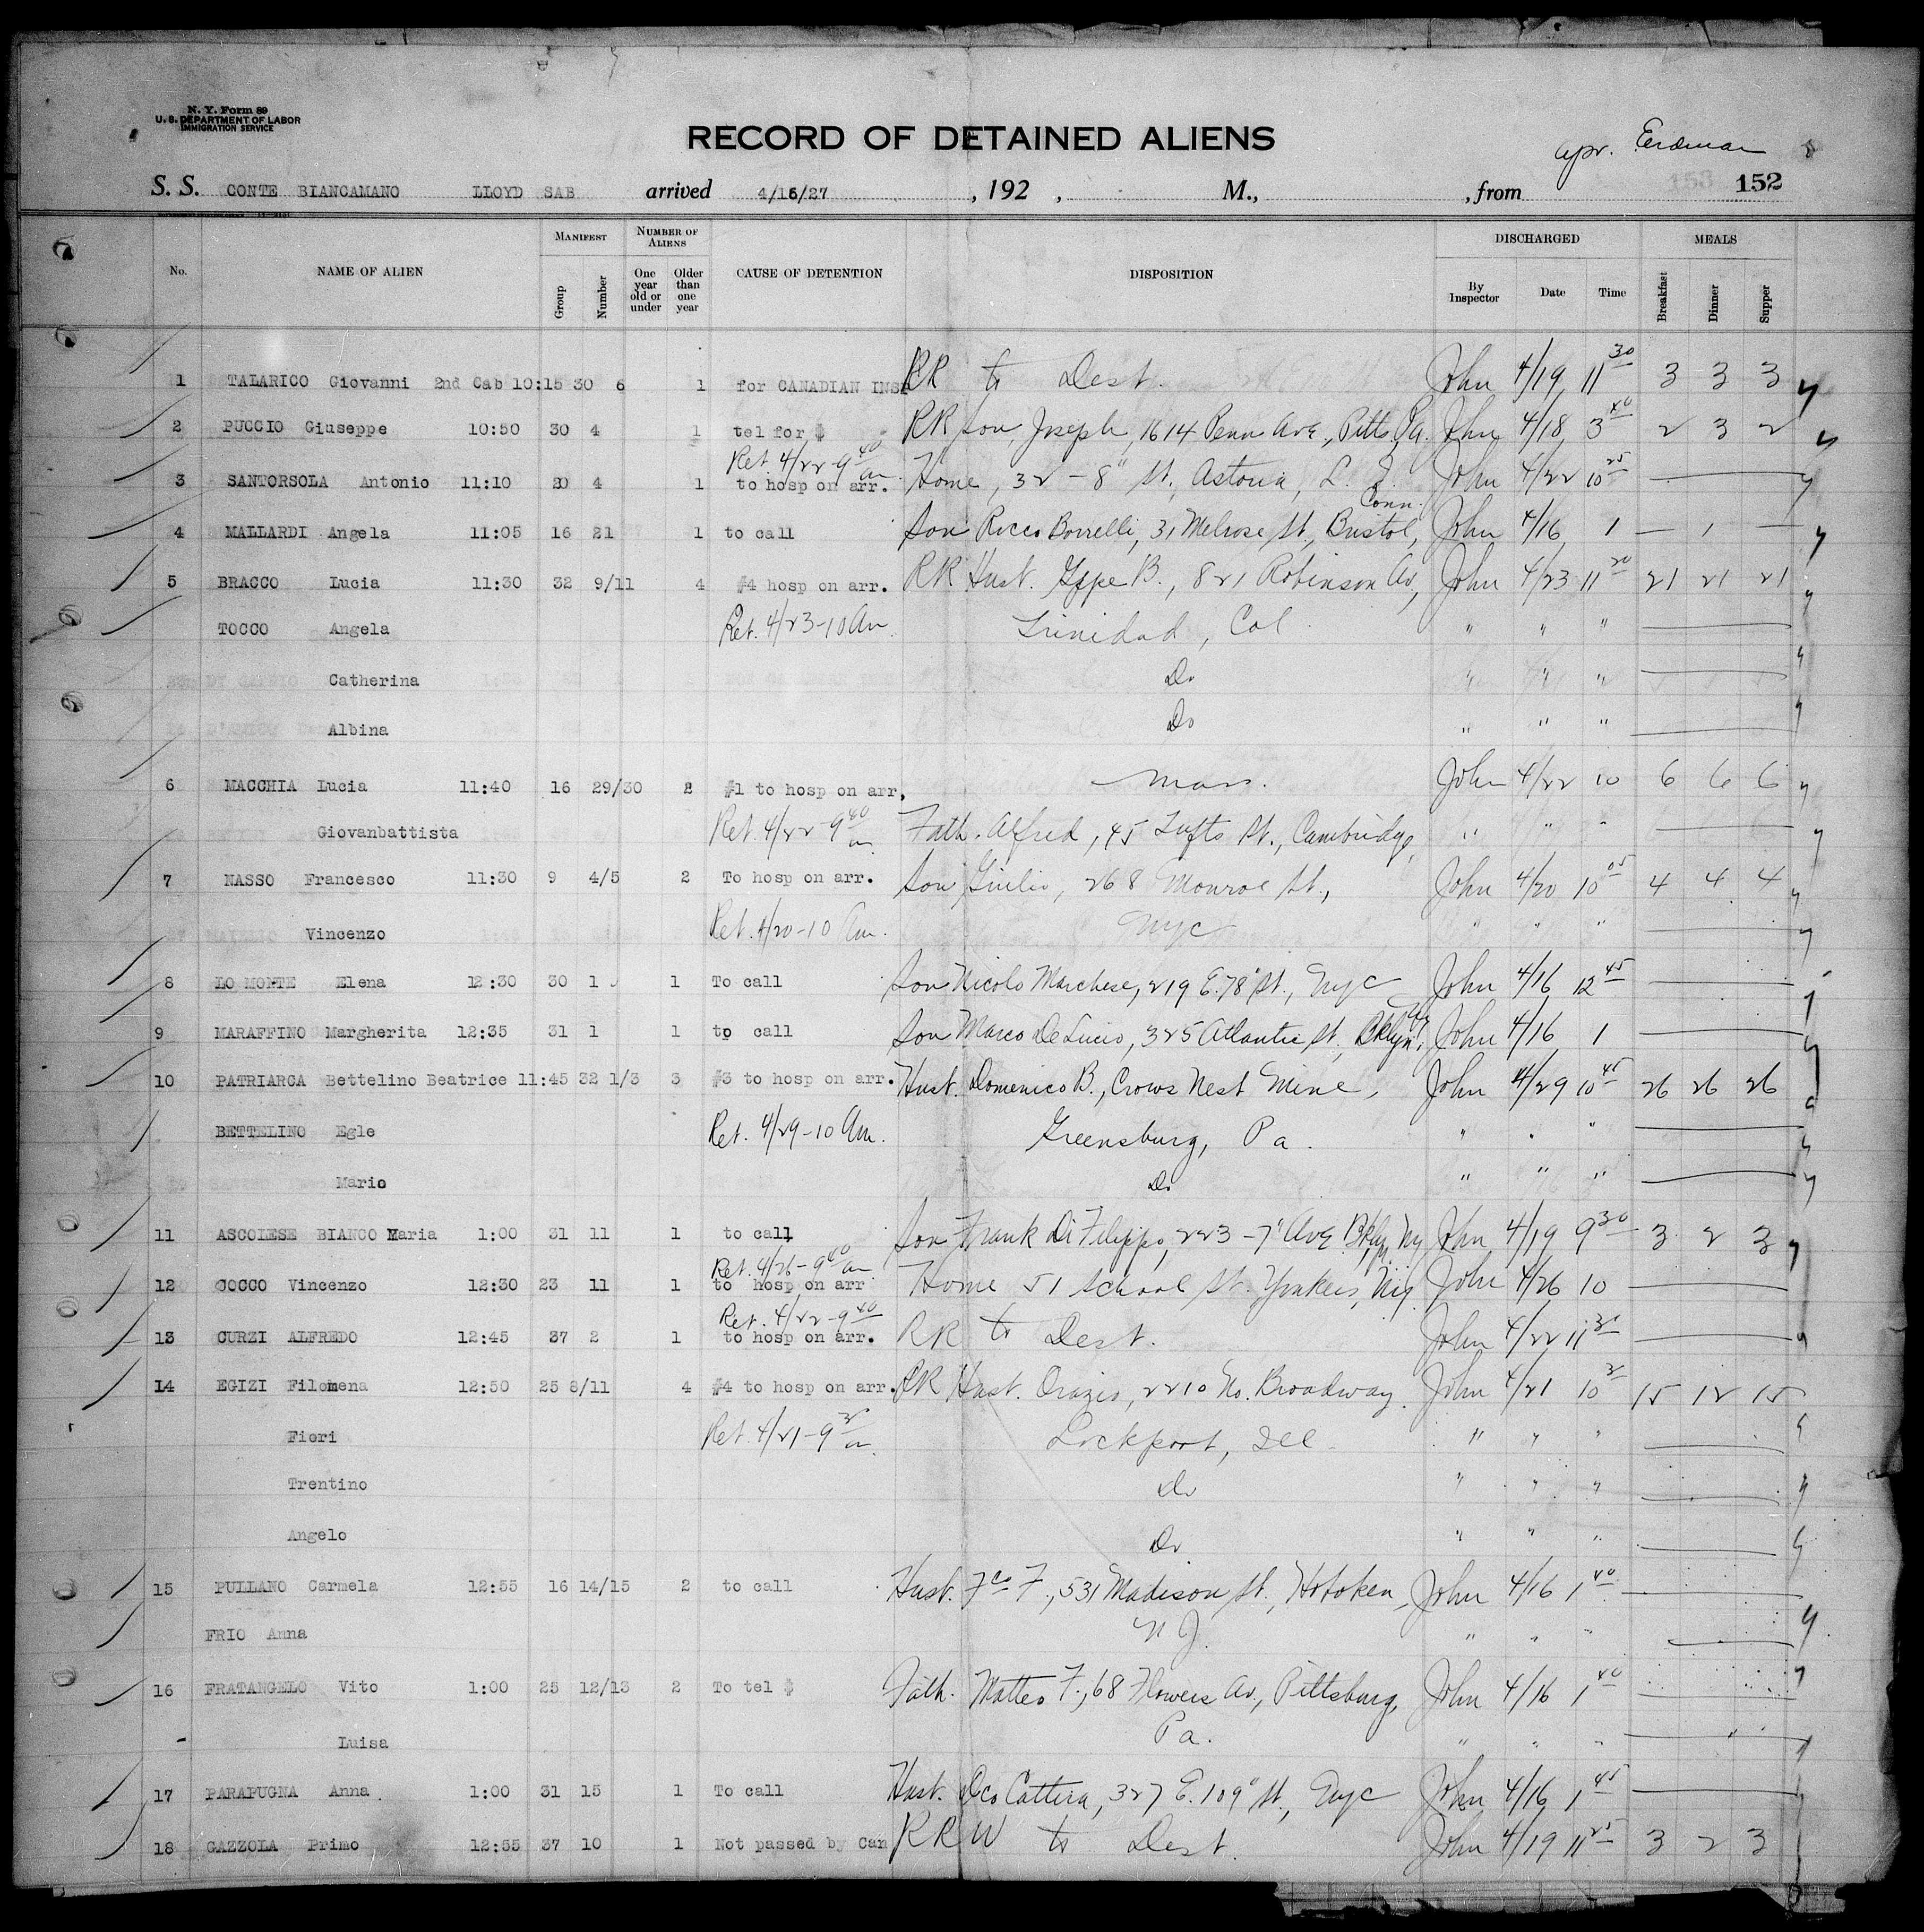 N. Y. Form 89
U. S. DEPARTMENT OF LABOR
IMMIGRATION SERVICE
RECORD OF DETAINED ALIENS
Apr. Erdman
S. S. CONTE BIANCAMANO LLOYD SAB arrived 4/16/27, 192 , M., , from 153 152
No. NAME OF ALIEN MANIFEST Group Number NUMBER OF ALIENS One year old or under Older than one year CAUSE OF DETENTION DISPOSITION DISCHARGED By Inspector Date Time MEALS Breakfast Dinner Supper
1 TALARICO Giovanni 2nd Cab 10:15 30 6 1 for CANADIAN INSP RR to Dest. John 4/19 11 30 3 3 3
2 PUCCIO Giuseppe 10:50 30 4 1 tel for $ RR Son, Joseph, 1614 Penn Ave, Pitts, Pa. John 4/18 3 40 2 3 2
Ret. 4/22-9 40 am
3 SANTORSOLA Antonio 11:10 20 4 1 to hosp on arr. Home, 32 - 8" St., Astoria, L. I. John 4/22 10 25
Conn.
4 MALLARDI Angela 11:05 16 21 1 to call Son Rocco Borrelli, 31 Melrose St., Bristol, John 4/16 1 — 1 —
5 BRACCO Lucia 11:30 32 9/11 4 #4 hosp on arr. RR Husb. Gppe B., 821 Robinson Av, John 4/23 11 20 21 21 21
TOCCO Angela Ret. 4/23-10 Am. Trinidad, Col. " " "
Catherina Do " " "
Albina Do " " "
6 MACCHIA Lucia 11:40 16 29/30 2 #1 to hosp on arr, Mass. John 4/22 10 6 6 6
Giovanbattista Ret. 4/22-9 40 am Fath. Alfred, 45 Tufts St., Cambridge, " " "
7 NASSO Francesco 11:30 9 4/5 2 To hosp on arr. Son Giulio, 268 Monroe St., John 4/20 10 05 4 4 4
Vincenzo Ret. 4/20-10 Am. NYC " " "
8 LO MONTE Elena 12:30 30 1 1 To call Son Nicolo Marchese, 219 E. 78" St., NYC John 4/16 12 45
9 MARAFFINO Margherita 12:35 31 1 1 to call Son Marco De Lucio, 325 Atlantic St., Bklyn, NY John 4/16 1
10 PATRIARCA Bettelino Beatrice 11:45 32 1/3 3 #3 to hosp on arr. Husb. Domenico B., Crows Nest Mine, John 4/29 10 45 26 26 26
BETTELINO Egle Ret. 4/29-10 Am. Greensburg, Pa. " " "
Mario Do " " "
11 ASCOLESE BIANCO Maria 1:00 31 11 1 to call Son Frank Di Filippo, 223 - 7" Ave Bklyn, NY John 4/19 9 30 3 2 3
Ret. 4/26-9 40 am
12 COCCO Vincenzo 12:30 23 11 1 to hosp on arr Home 51 School St. Yonkers, NY John 4/26 10
Ret. 4/22-9 40
13 CURZI ALFREDO 12:45 37 2 1 to hosp on arr. RR to Dest. John 4/22 11 30
14 EGIZI Filomena 12:50 25 8/11 4 #4 to hosp on arr. RR Husb. Orazio, 2210 No. Broadway John 4/21 10 30 15 12 15
Fiori Ret. 4/21-9 30 am Lockport, Ill. " " "
Trentino Do " " "
Angelo Do " " "
15 PULLANO Carmela 12:55 16 14/15 2 to call Husb. Fco F., 531 Madison St., Hoboken, John 4/16 1 40
FRIO Anna N J. " " "
16 FRATANGELO Vito 1:00 25 12/13 2 To tel $ Fath. Matteo F., 68 Flowers Av., Pittsburg, John 4/16 1 40
Luisa Pa. " " "
17 PARAPUGNA Anna 1:00 31 15 1 To call Husb. Dco Cattera, 327 E. 109" St., NYC John 4/16 1 45
18 GAZZOLA Primo 12:55 37 10 1 Not passed by Can RRW to Dest. John 4/19 11 25 3 2 3